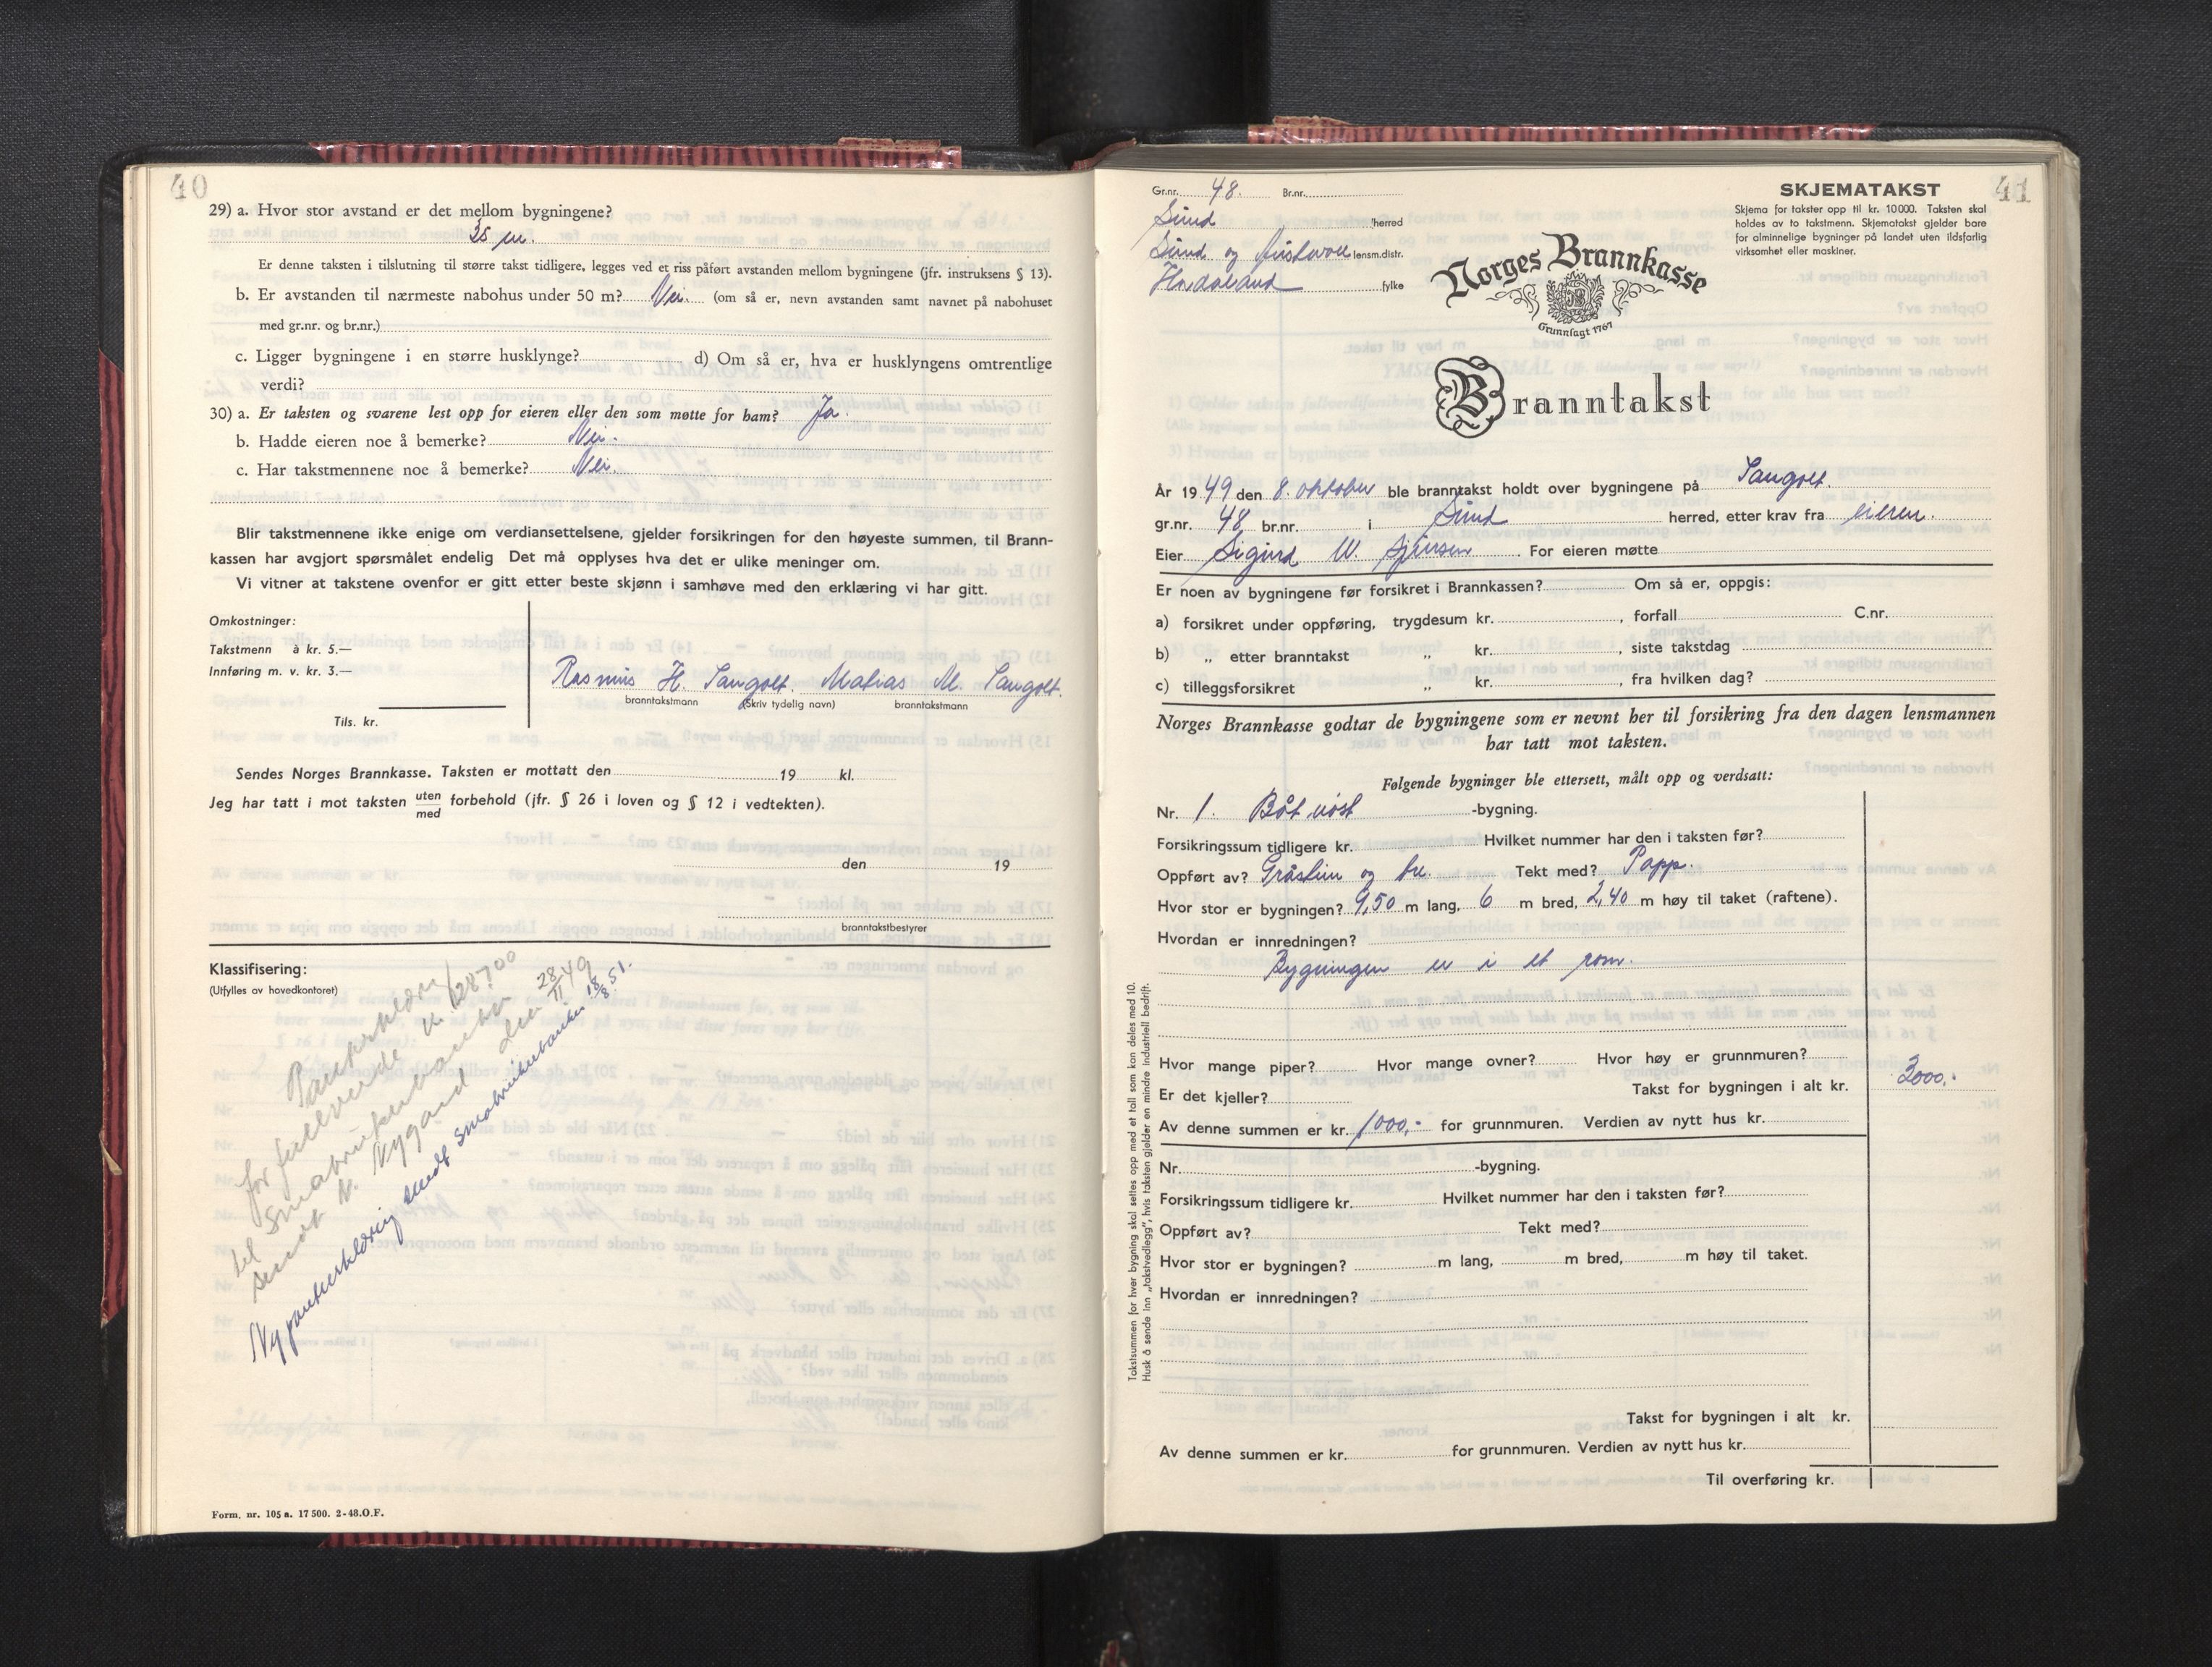 40
29) a. Hvor stor avstand er det mellom bygningene?
25 m.
Er denne taksten i tilslutning til større takst tidligere, legges ved et riss påført avstanden mellom bygningene (jfr. instruksens § 13).
b. Er avstanden til nærmeste nabohus under 50 m? Nei. (om så er, nevn avstanden samt navnet på nabohuset
med gr.nr. og br.nr.)
c. Ligger bygningene i en større husklynge? d) Om så er, hva er husklyngens omtrentlige
verdi?
30) a. Er taksten og svarene lest opp for eieren eller den som møtte for ham? Ja.
b. Hadde eieren noe å bemerke? Nei.
c. Har takstmennene noe å bemerke? Nei.
Blir takstmennene ikke enige om verdiansettelsene, gjelder forsikringen for den høyeste summen, til Brann-
kassen har avgjort spørsmålet endelig Det må opplyses hva det er ulike meninger om.
Vi vitner at takstene ovenfor er gitt etter beste skjønn i samhøve med den erklæring vi har gitt.
Omkostninger:
Takstmenn à kr. 5.—
Innføring m. v. kr. 3.—
Tils. kr.
Rasmus H. Tangolt. Matias M. Tangolt.
branntakstmann (Skriv tydelig navn) branntakstmann
Sendes Norges Brannkasse. Taksten er mottatt den 19 kl.
Jeg har tatt i mot taksten uten/med forbehold (jfr. § 26 i loven og § 12 i vedtekten).
den 19
branntakstbestyrer
Klassifisering:
(Utfylles av hovedkontoret)
Panterklæring
for fullverdi kr. 128700
til Småbrukerbanken
sendt v. Nygård den 28/11 49
Ny panterklæring sendt Småbrukerbanken 18/8 51.
Form. nr. 105 a. 17 500. 2-48. O.F.
41
Gr.nr. 48. Br.nr.
Sund herred
Sund og Austevoll lensm.distr.
Hordaland fylke
SKJEMATAKST
Skjema for takster opp til kr. 10 000. Taksten skal
holdes av to takstmenn. Skjematakst gjelder bare
for alminnelige bygninger på landet uten ildsfarlig
virksomhet eller maskiner.
Norges Brannkasse
Grunnlagt 1767
Branntakst
År 19 49 den 8. oktober ble branntakst holdt over bygningene på Tangolt.
gr.nr. 48 br.nr. i Sund herred, etter krav fra eieren.
Eier Sigurd W. Sjursen . For eieren møtte
Er noen av bygningene før forsikret i Brannkassen? Om så er, oppgis:
a) forsikret under oppføring, trygdesum kr. , forfall C.nr.
b) „ etter branntakst „ kr. , siste takstdag
c) tilleggsforsikret „ kr. , fra hvilken dag?
Norges Brannkasse godtar de bygningene som er nevnt her til forsikring fra den dagen lensmannen
har tatt mot taksten.
Følgende bygninger ble ettersett, målt opp og verdsatt:
Nr. 1. Båtnøst -bygning.
Forsikringssum tidligere kr. Hvilket nummer har den i taksten før?
Oppført av? Gråstein og tre. Tekt med? Papp.
Hvor stor er bygningen? 9,50 m lang, 6 m bred, 2,40 m høy til taket (raftene).
Hvordan er innredningen?
Bygningen er i et rom.
Hvor mange piper? Hvor mange ovner? Hvor høy er grunnmuren?
Er det kjeller? Takst for bygningen i alt kr. 3000,-
Av denne summen er kr. 1000,- for grunnmuren. Verdien av nytt hus kr.
Nr. -bygning.
Forsikringssum tidligere kr. Hvilket nummer har den i taksten før?
Oppført av? Tekt med?
Hvor stor er bygningen? m lang, m bred, m høy til taket.
Hvordan er innredningen?
Takst for bygningen i alt kr.
Av denne summen er kr. for grunnmuren. Verdien av nytt hus kr.
Til overføring kr.
Takstsummen for hver bygning skal settes opp med et tall som kan deles med 10.
Husk å sende inn „takstvedlegg", hvis taksten gjelder en mindre industriell bedrift.